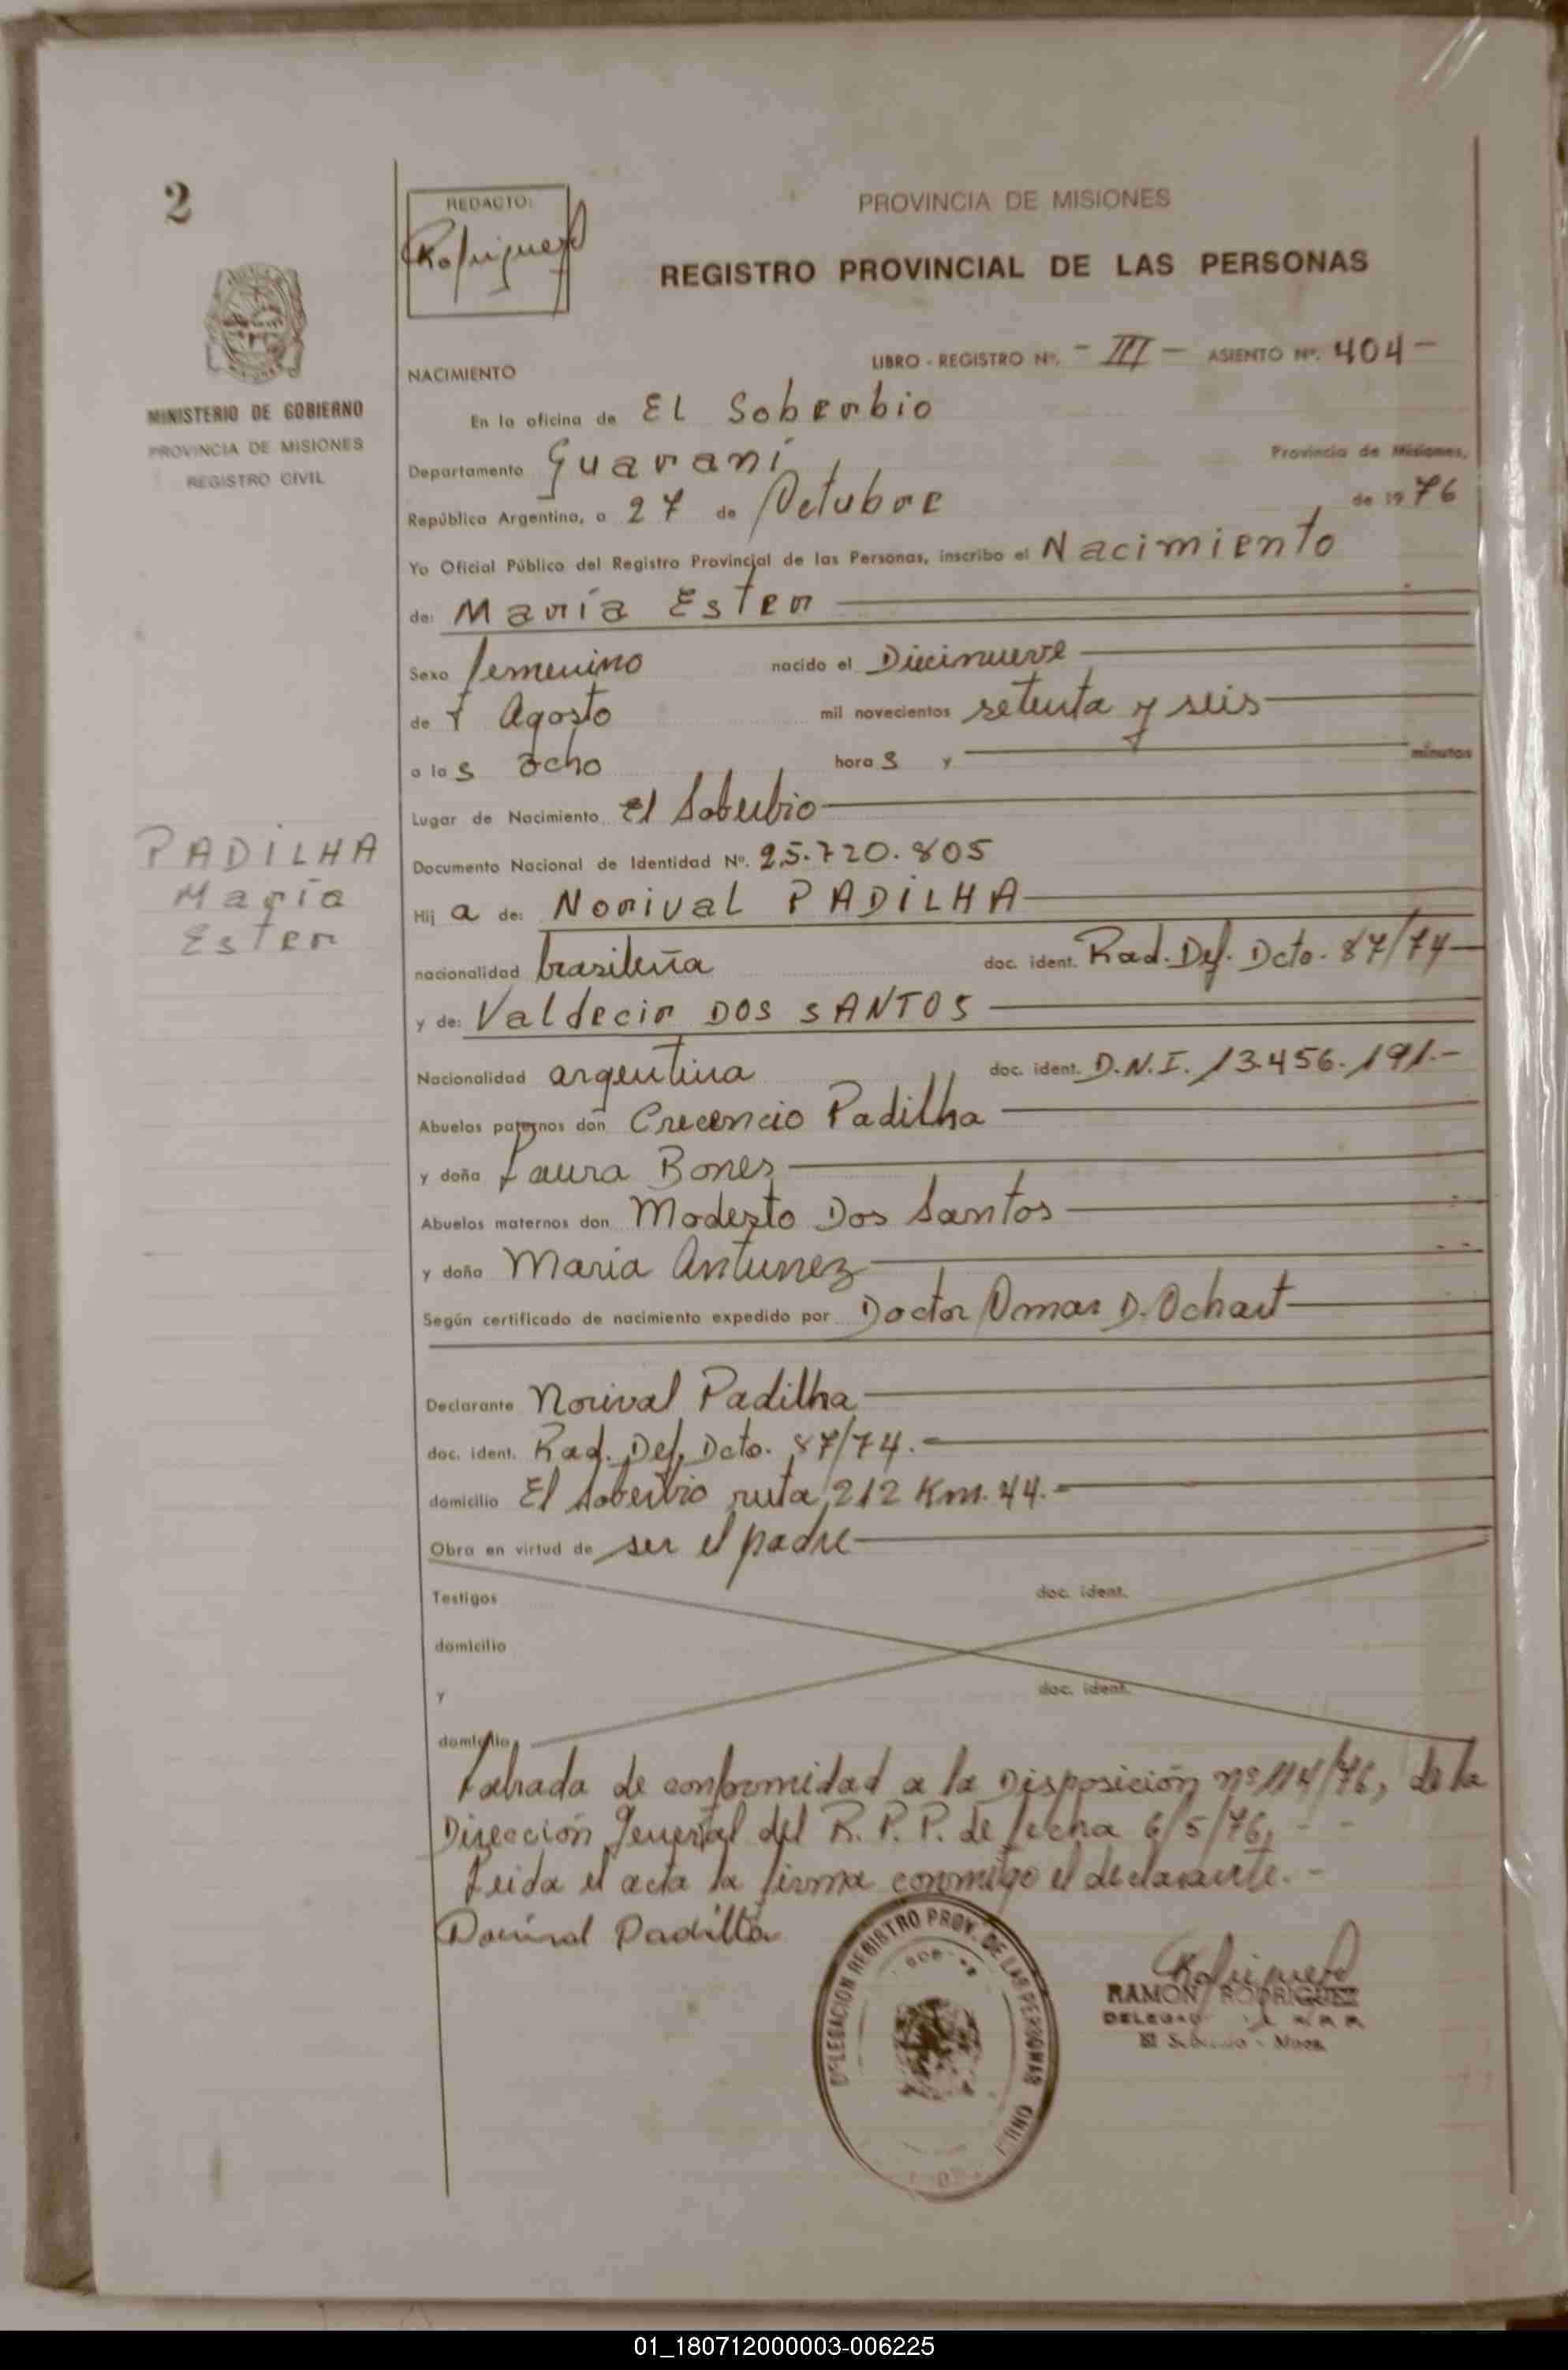 2
REDACTO:
Rodriguez
PROVINCIA DE MISIONES
REGISTRO PROVINCIAL DE LAS PERSONAS
MINISTERIO DE GOBIERNO
PROVINCIA DE MISIONES
REGISTRO CIVIL
NACIMIENTO
LIBRO - REGISTRO Nº. - III - ASIENTO Nº. 404 -
En la oficina de El Soberbio
Departamento Guaraní Provincia de Misiones,
República Argentina, a 27 de Octubre de 1976
Yo Oficial Público del Registro Provincial de las Personas, inscribo el Nacimiento
de: María Ester
Sexo femenino nacido el Diecinueve
de Agosto mil novecientos setenta y seis
a las ocho horas y minutos
Lugar de Nacimiento El Soberbio
Documento Nacional de Identidad Nº. 25.720.805
PADILHA
María
Ester
Hija de: Norival PADILHA
nacionalidad brasileña doc. ident. Rad. Def. Dcto. 87/74
y de: Valdecir DOS SANTOS
Nacionalidad argentina doc. ident. D.N.I. 13.456.191.-
Abuelos paternos don Crecencio Padilha
y doña Laura Bones
Abuelos maternos don Modesto Dos Santos
y doña Maria Antunez
Según certificado de nacimiento expedido por Doctor Omar D. Ochart
Declarante Norival Padilha
doc. ident. Rad. Def. Dcto. 87/74.-
domicilio El Soberbio ruta 212 Km. 44.-
Obra en virtud de ser el padre
Testigos doc. ident.
domicilio
y doc. ident.
domicilio
Labrada de conformidad a la Disposición nº 114/76, de la
Dirección General del R. P. P. de fecha 6/5/76, - -
Leida el acta la firma conmigo el declarante. -
Norival Padilha
DELEGACION REGISTRO PROV. DE LAS PERSONAS
Rodriguez
RAMON RODRIGUEZ
DELEGADO
El Soberbio - Mnes.
01_180712000003-006225